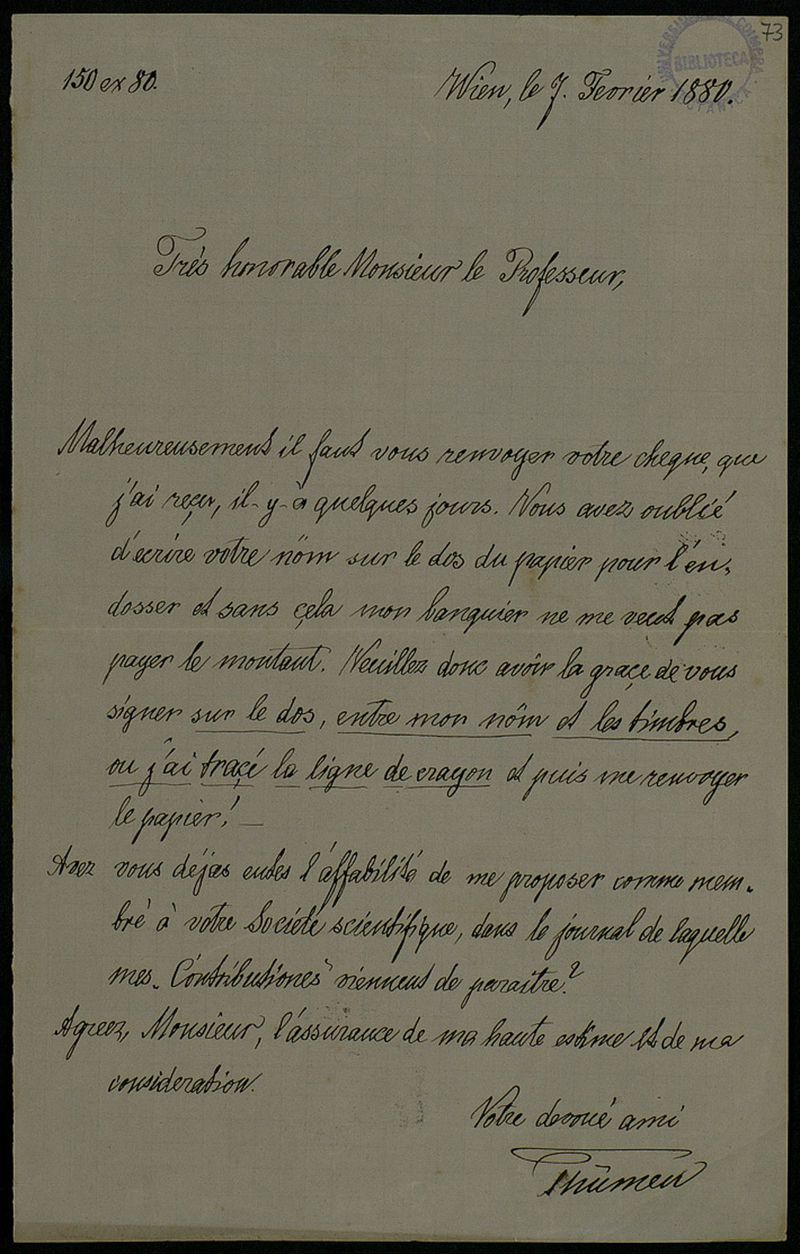 73
UNIVERSIDADE DE COIMBRA
BIBLIOTECA
150 ex 80.
Wien, le 7. Fevrier 1880.
Très honorable Monsieur le Professeur,
Malheureusement il faut vous renvoyer votre cheque, que
j'ai reçu, il-y-a quelques jours. Vous avez oublié
d'ecrire votre nöm sur le dos du papier pour l'en-
dosser et sans çela mon banquier ne me veut pas
payer le montant. Veuillez donc avoir la graçe de vous
signer sur le dos, entre mon nöm et les timbres,
ou j'ai traçé la ligne de crayon et puis me renvoyer
le papier! —
Avez vous déjas eutes l'affabilité de me proposer comme mem-
bré à votre Société scientifique, dans le journal de laquelle
mes „Contributiones" viennent de paraitre?
Agreez, Monsieur, l'assurance de ma haute estime et de ma
consideration.
Votre devoué ami
Thümen